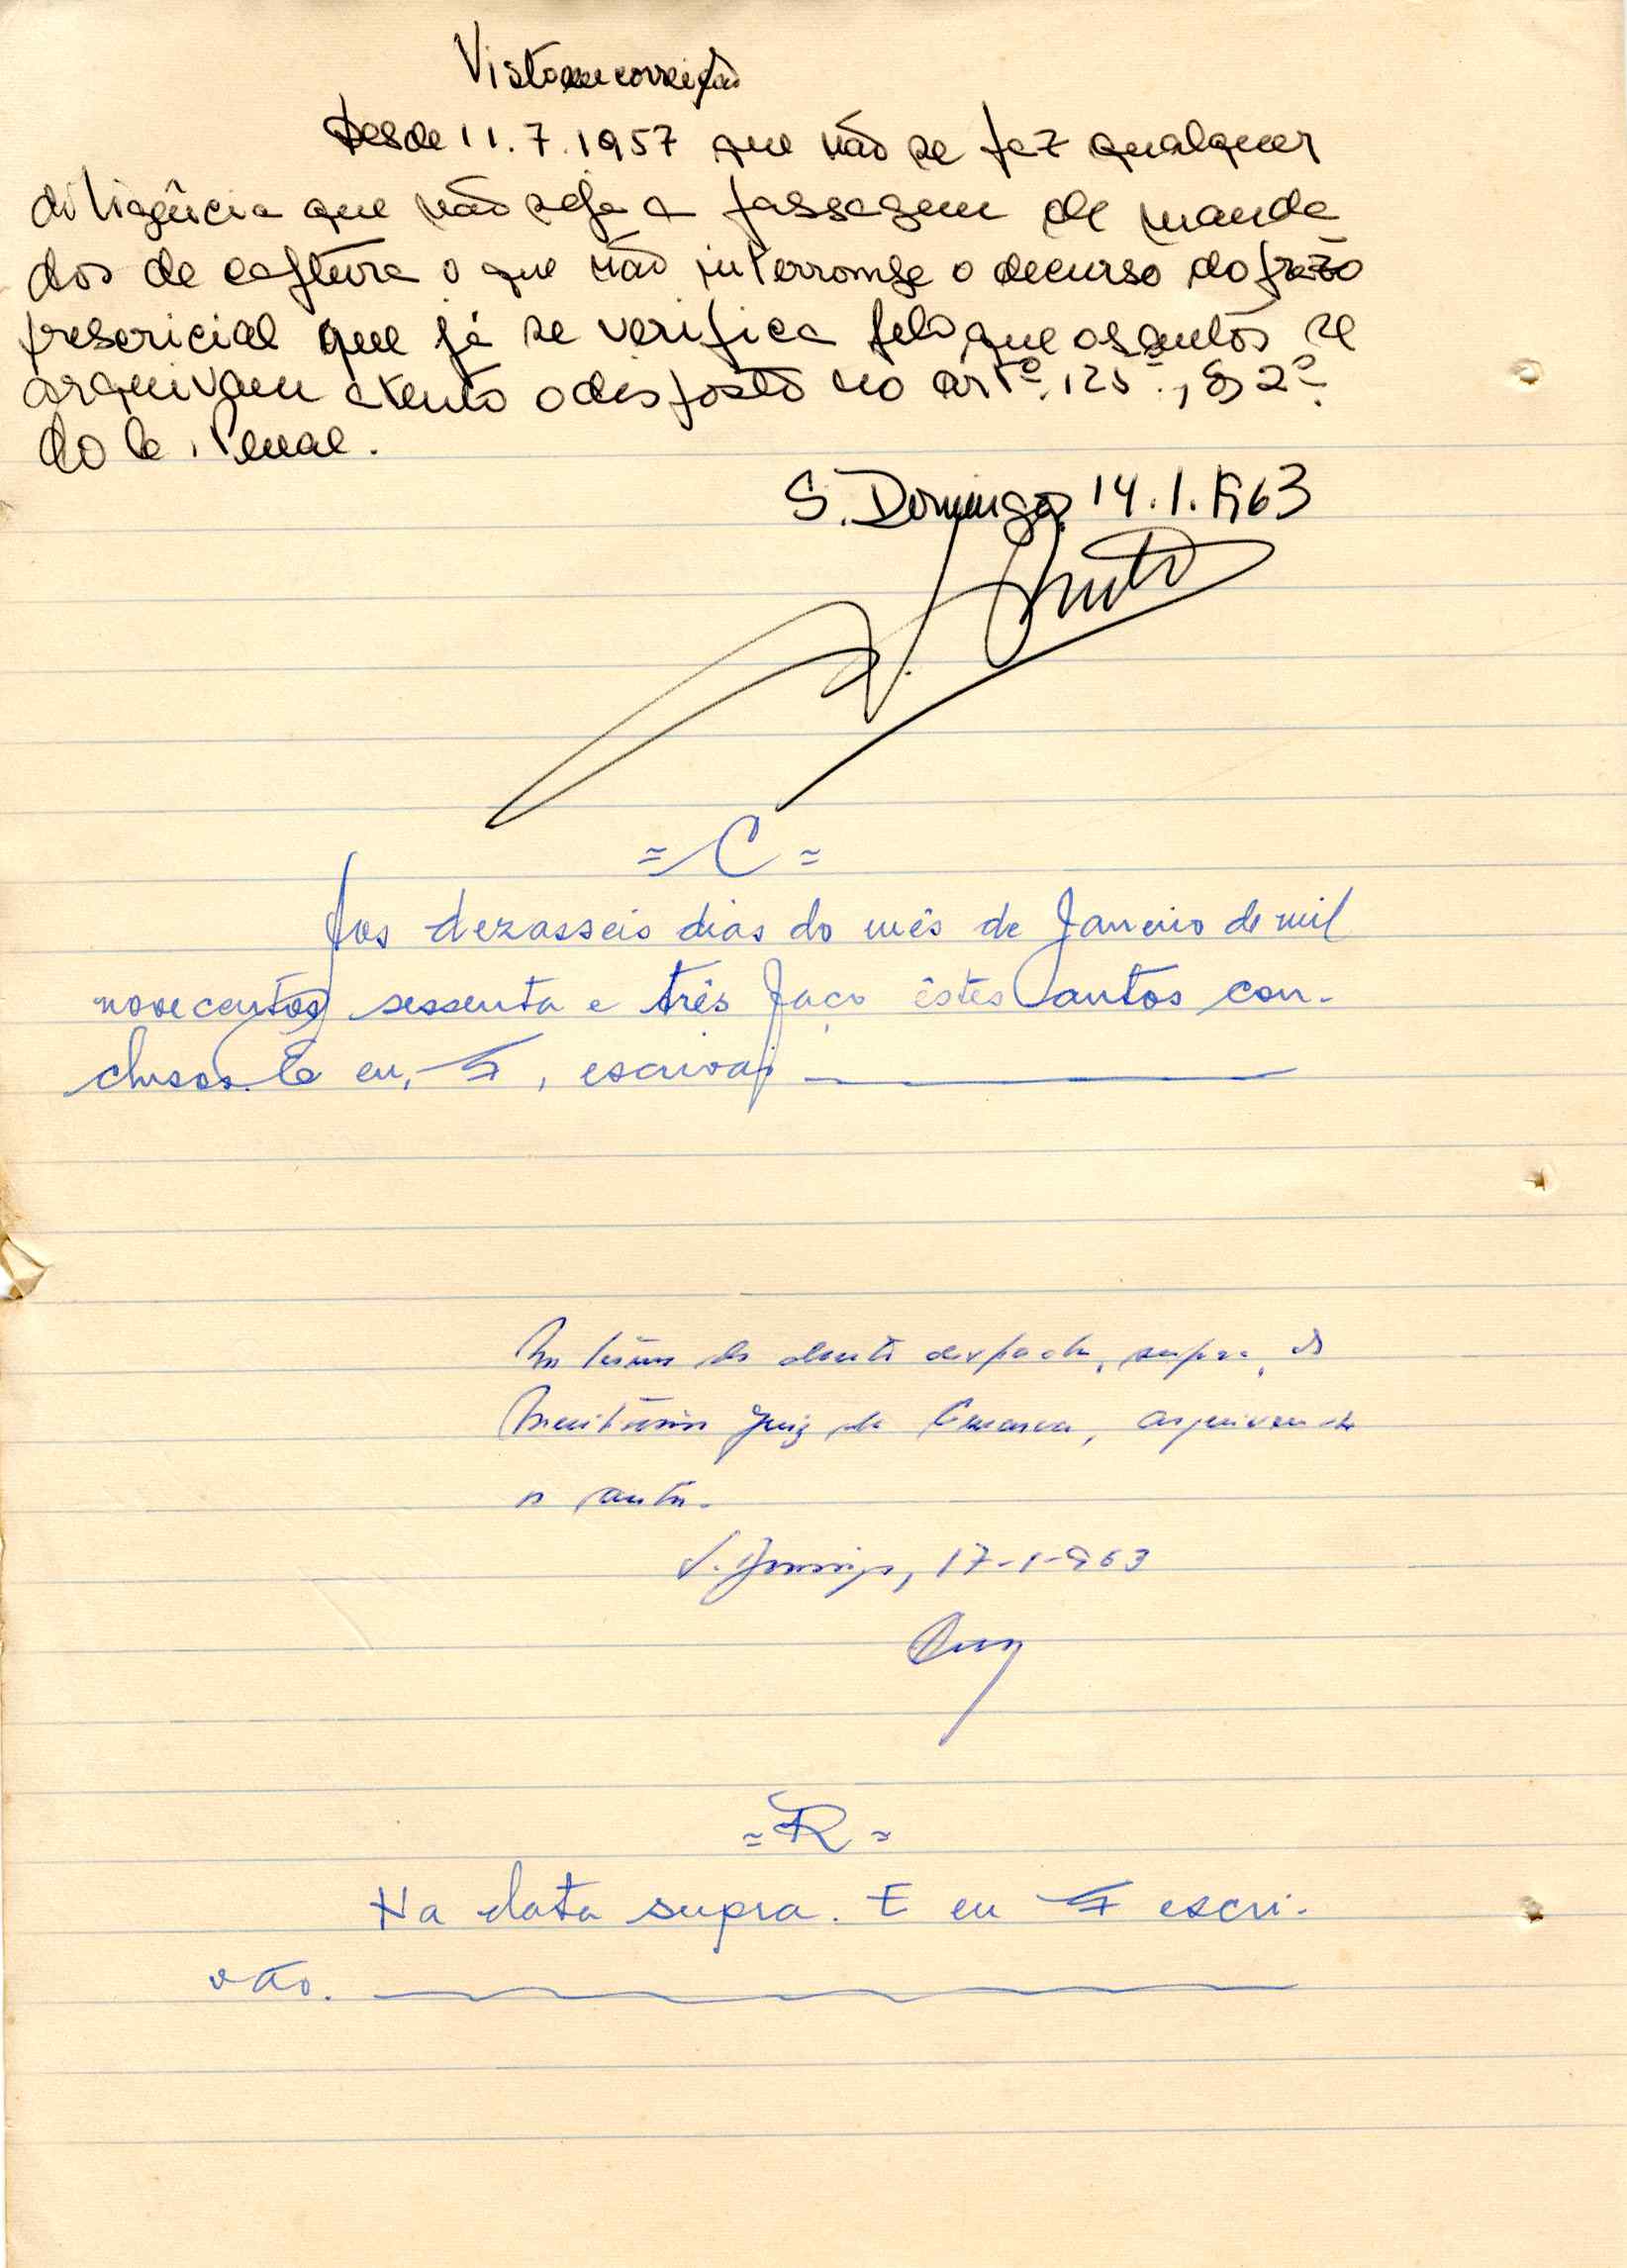 Visto em correição
Desde 11.7.1957 que não se fez qualquer
diligência que não seja a passagem de manda
dos de captura o que não interrompe o decurso do prazo
prescricial que já se verifica pelo que os autos se
arquivam atento o disposto no artº. 125º., § 2º.
do C. Penal.
S. Domingos, 14.1.1963
= C =
Aos dezasseis dias do mês de Janeiro de mil
novecentos sessenta e três faço êstes autos con-
clusos. E eu, , escrivão
Em termos do douto despacho, supra, do
Meritíssimo Juiz da Comarca, arquivem-se
os autos.
S. Domingos, 17-1-963
= R =
Na data supra. E eu escri-
vão.